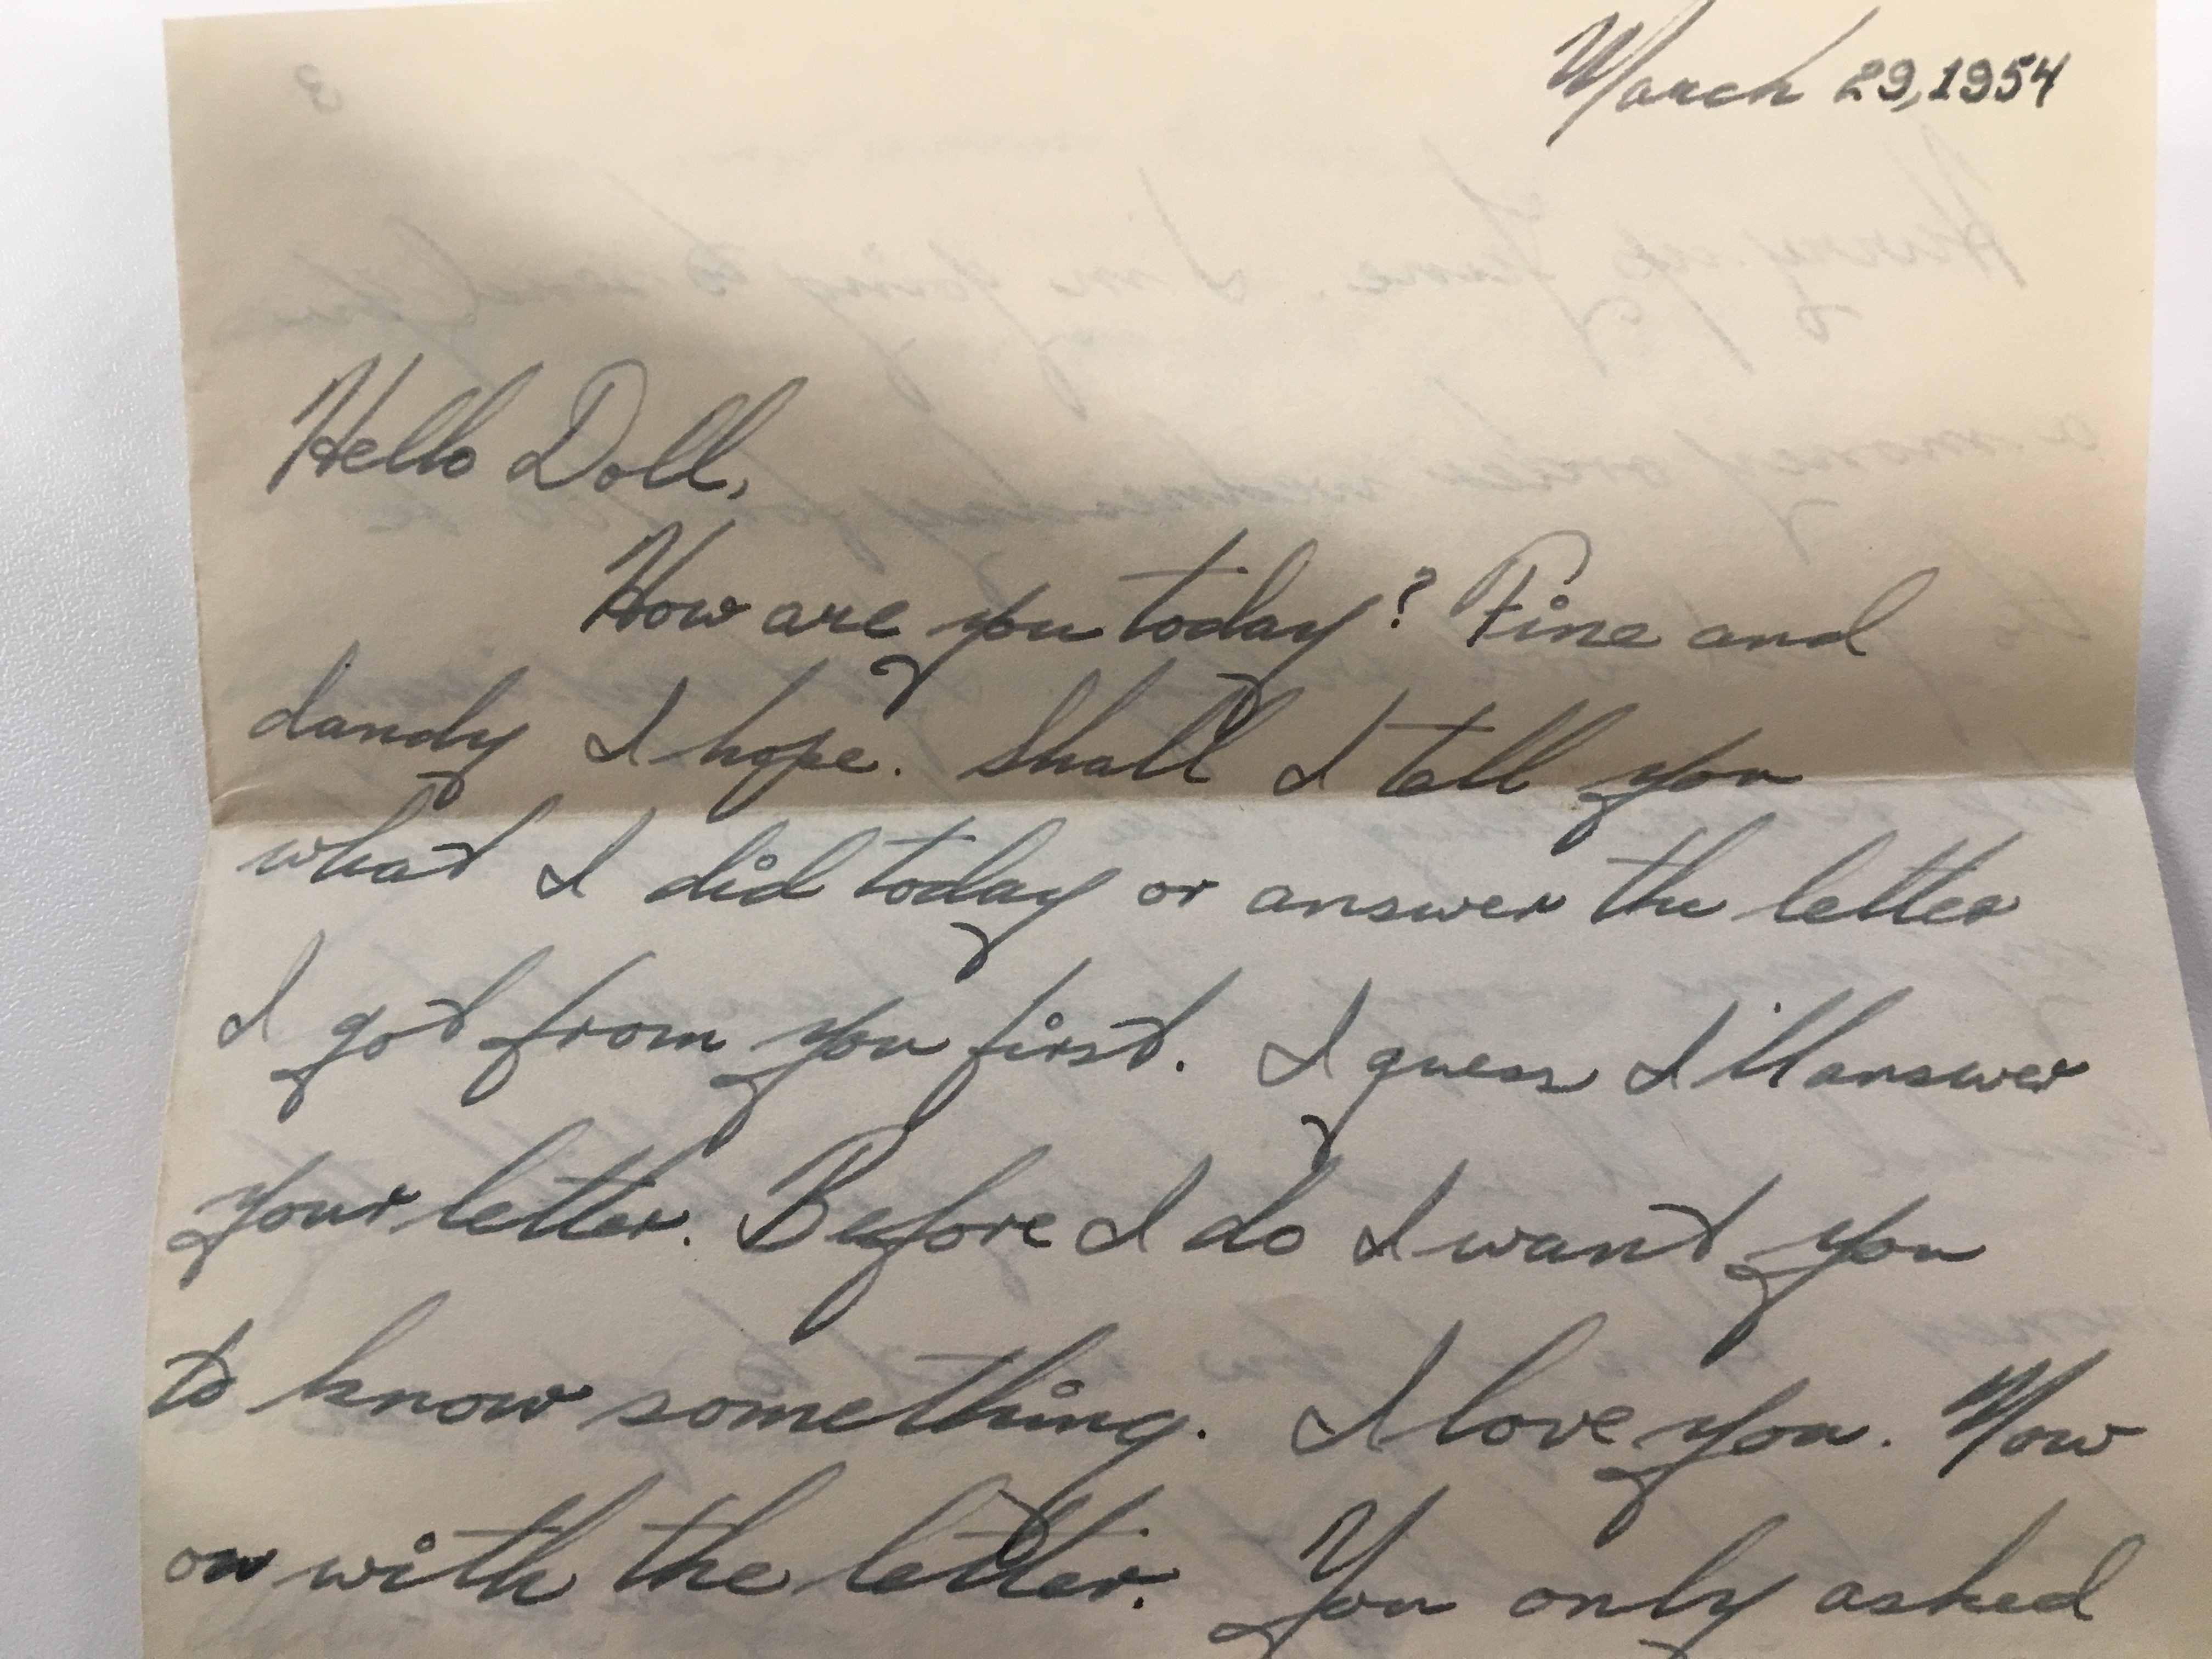 March 29, 1954
Hello Doll,
How are you today? Fine and
dandy I hope. Shall I tell you
what I did today or answer the letter
I got from you first. I guess I'll answer
your letter. Before I do I want you
to know something. I love you. Now
on with the letter. You only asked